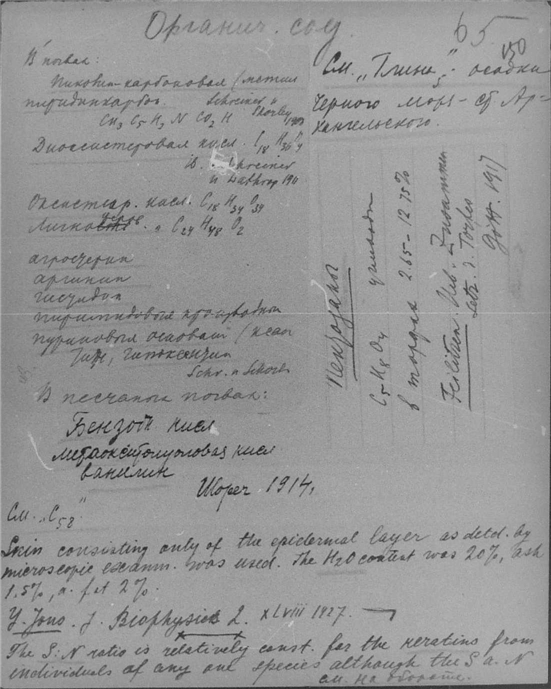 Органич. соед.
65
В почвах:
Пиколин-карбоновая (метил
пиридинкарбо. Schreiner и Shorley
CH3 C5 H3 N CO2 H
Диоксистеаровая кисл. C18 H36 O4
Schreiner
и Lathrop
Оксистеар. кисл. C18 H34 O3
C24 H48 O2
агроцерин
аргинин
гистидин
пиримидовые производные
пуриновые основан (ксан
тин, гипоксантин
Schr. и Schorl
В песчаных почвах:
Бензой кисл
метаокситолуоловая кисл
ванилин
Шорей 1914,
См. "Глины", осадки
Черного моря - сб Ар-
хангельского.
Пентозаны
C5 H8 O4 углеводы
в торфах 2.65-12.75%
Feilitzen. Unt. ü. Zusammen
setz. d. Torfes
Gött. 1917
См. "С52"
Skin consisting only of the epidermal layer as detd. by
microscopic examn. was used. The H2O content was 20%, ash
1.5%, a. fat 2%.
Y. Jono. J. Biophysics 2. XLVIII 1927.
The S:N ratio is relatively const. for the keratins from
individuals of any one species although the S a. N
см. на обороте.